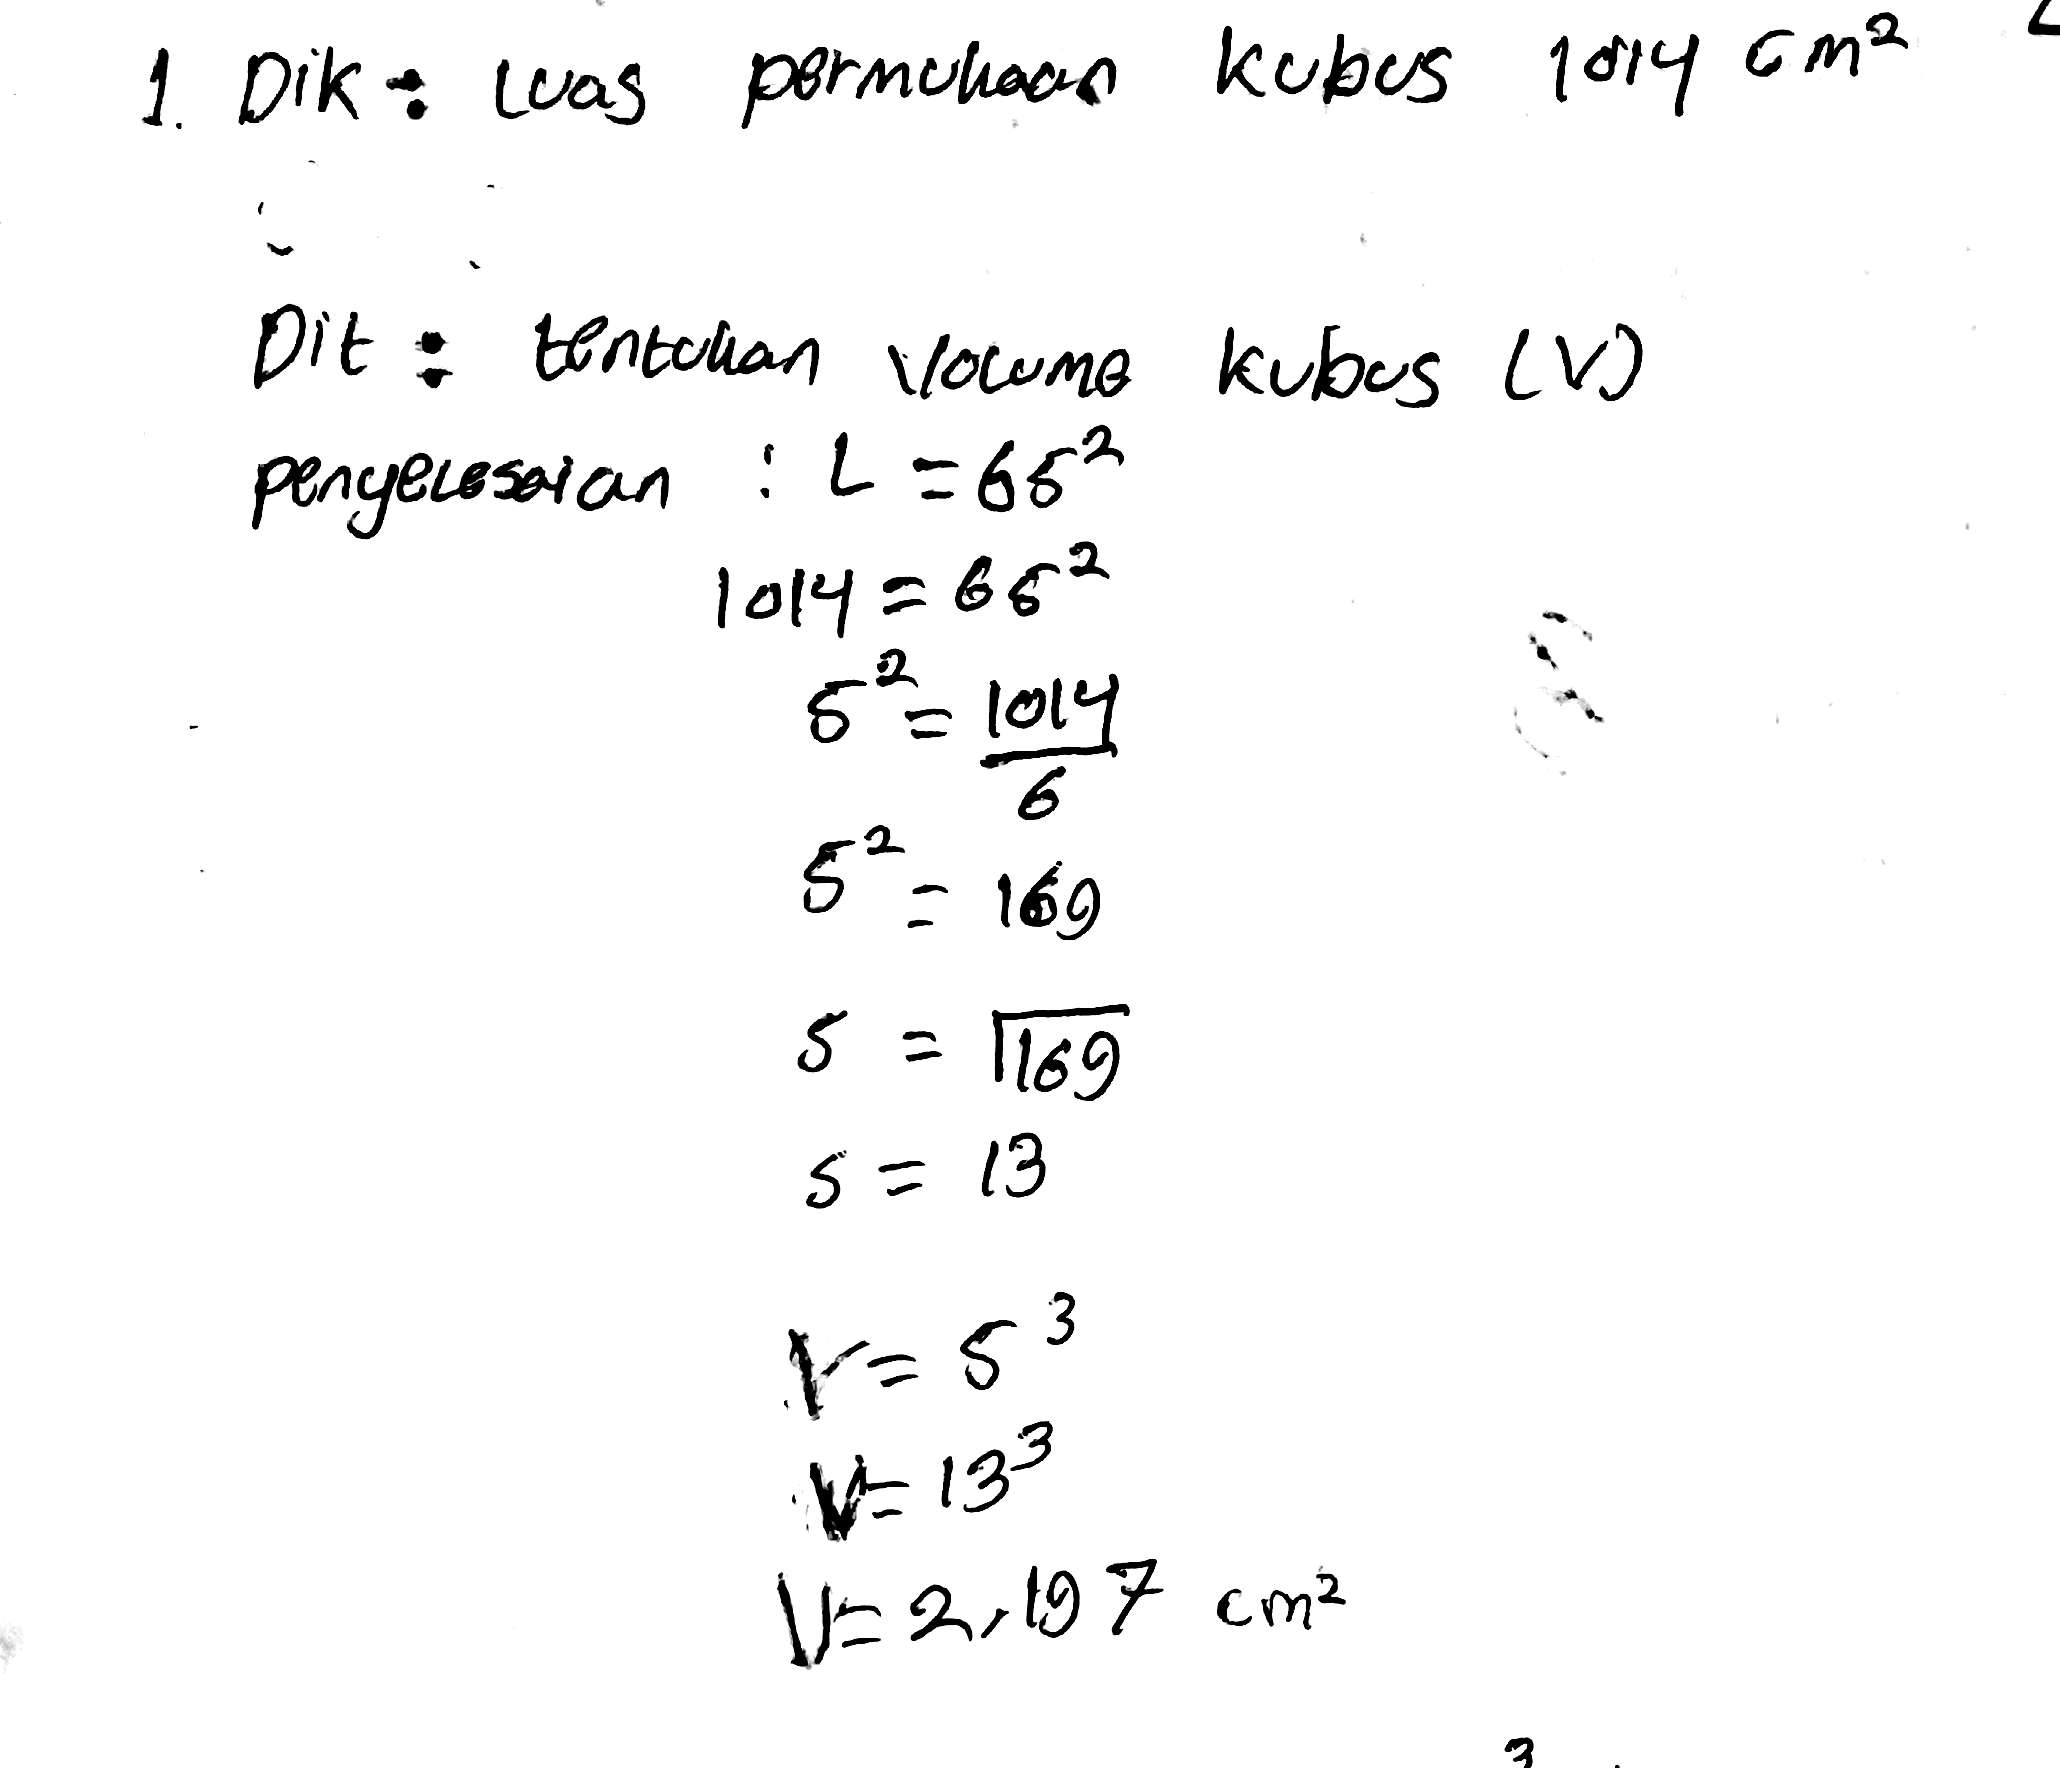 1. Dik : Luas permukaan kubus 1014 cm²
Dit : tentukan Volume kubus (V)
penyelesaian : L = 6s²
1014 = 6s²
s² = 1014/6
s² = 169
s = √169
s = 13
V = s³
V = 13³
V = 2.197 cm²
3